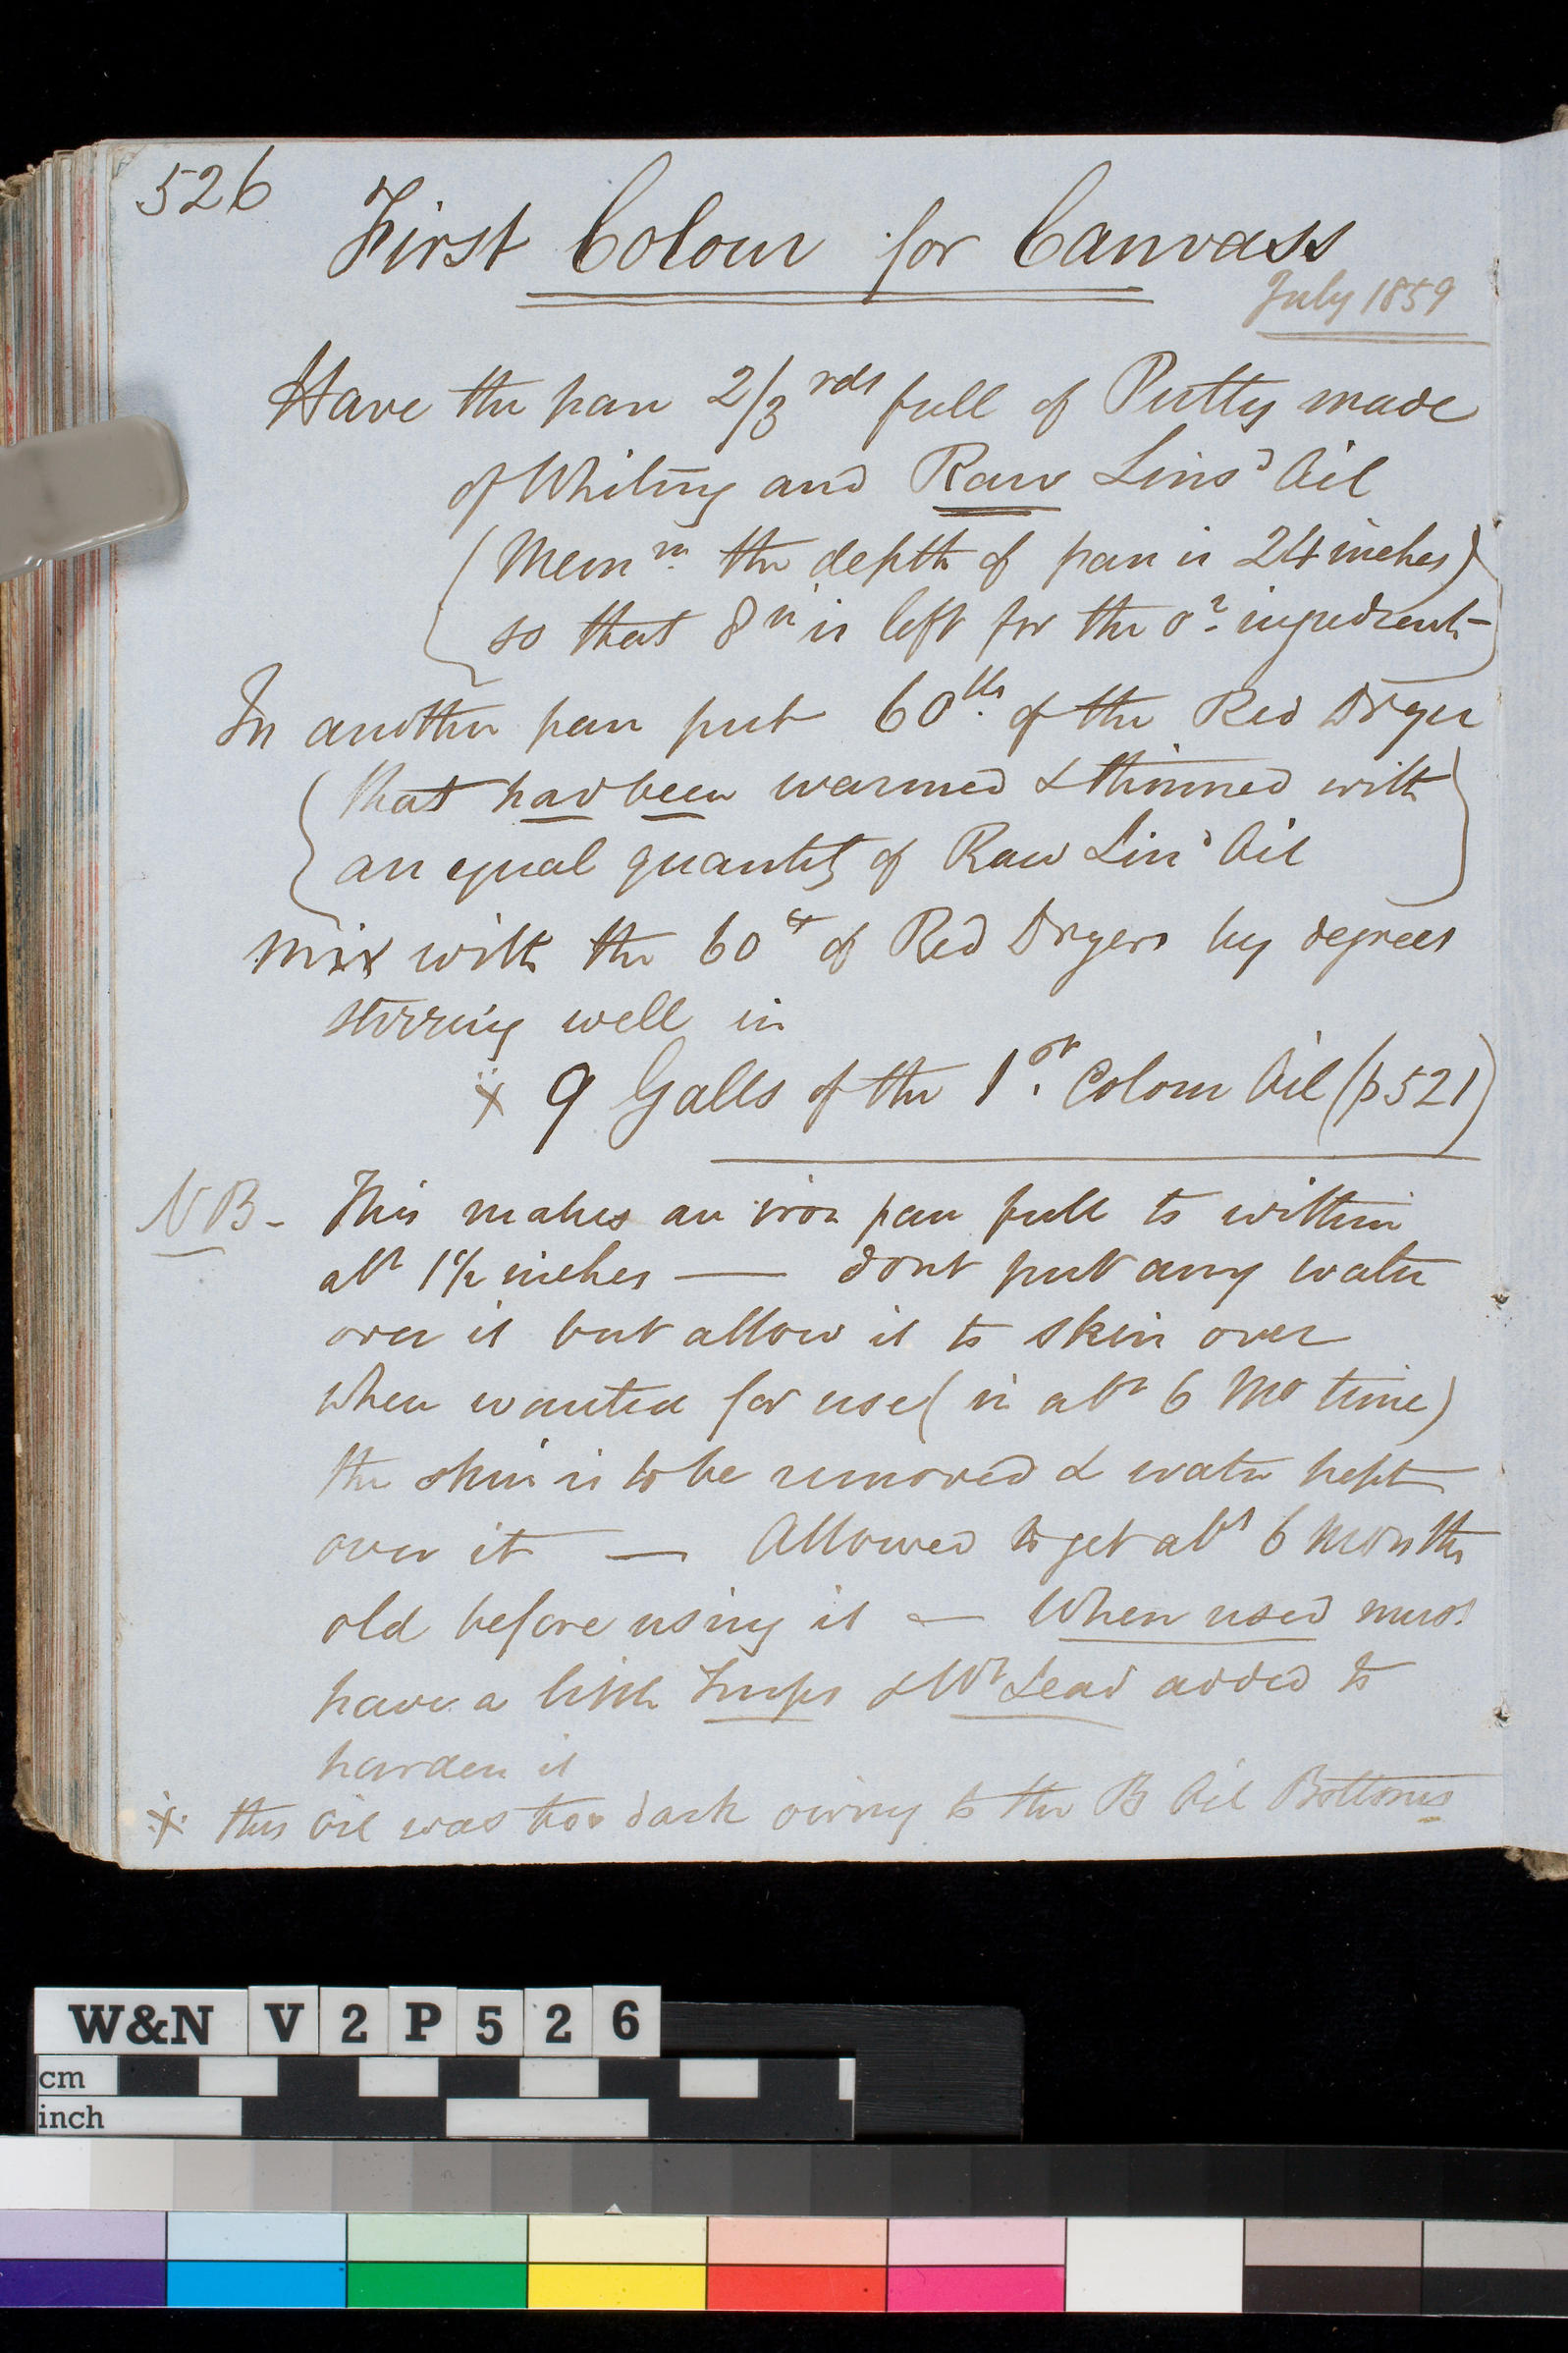 526
First Colour for Canvass
July 1859
Have the pan 2/3rds full of Putty made
of Whiting and Raw Linsd Oil
(Memm the depth of pan is 24 inches)
so that 8 in is left for the or ingredients
In another pan put 60lbs of the Red Dryer
(that had been warmed & thinned with
an equal quantity of Raw Lind Oil)
mix with the 60lbs of Red Dryers by degrees
stirring well in
x 9 Galls of the 1st Colour Oil (p521)
NB - This makes an iron pan full to within
abt 1 1/2 inches — dont put any water
over it but allow it to skin over
when wanted for use (in abt 6 Mo time)
the skin is to be removed & water kept
over it — Allowed to get abt 6 Months
old before using it — When used must
have a little Turps & Wt Lead added to
harden it
x this Oil was too dark owing to the B Oil Bottoms
W&N V2P526
cm
inch